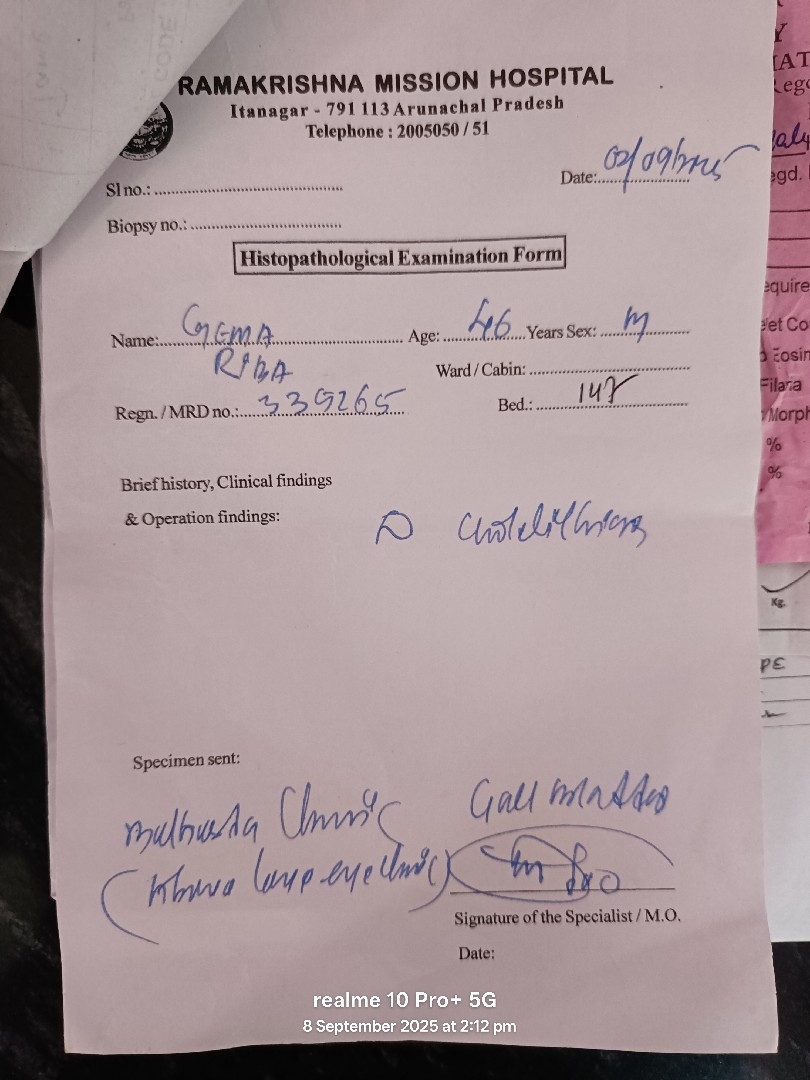 RAMAKRISHNA MISSION HOSPITAL
Itanagar - 791 113 Arunachal Pradesh
Telephone : 2005050 / 51
Sl no.: ........................................
Date: 02/09/2025
Biopsy no.: ........................................
Histopathological Examination Form
Name: GEMA RIBA Age: 46 Years Sex: M
Ward / Cabin: ........................................
Regn. / MRD no.: 339265 Bed.: 147
Brief history, Clinical findings
& Operation findings:
Specimen sent:
Clinic Gall
eye clinic)
Signature of the Specialist / M.O.
Date:
realme 10 Pro+ 5G
8 September 2025 at 2:12 pm
Y
egd.
equire
Eosin
Filaria
Morph
%
%
Kg.
PE